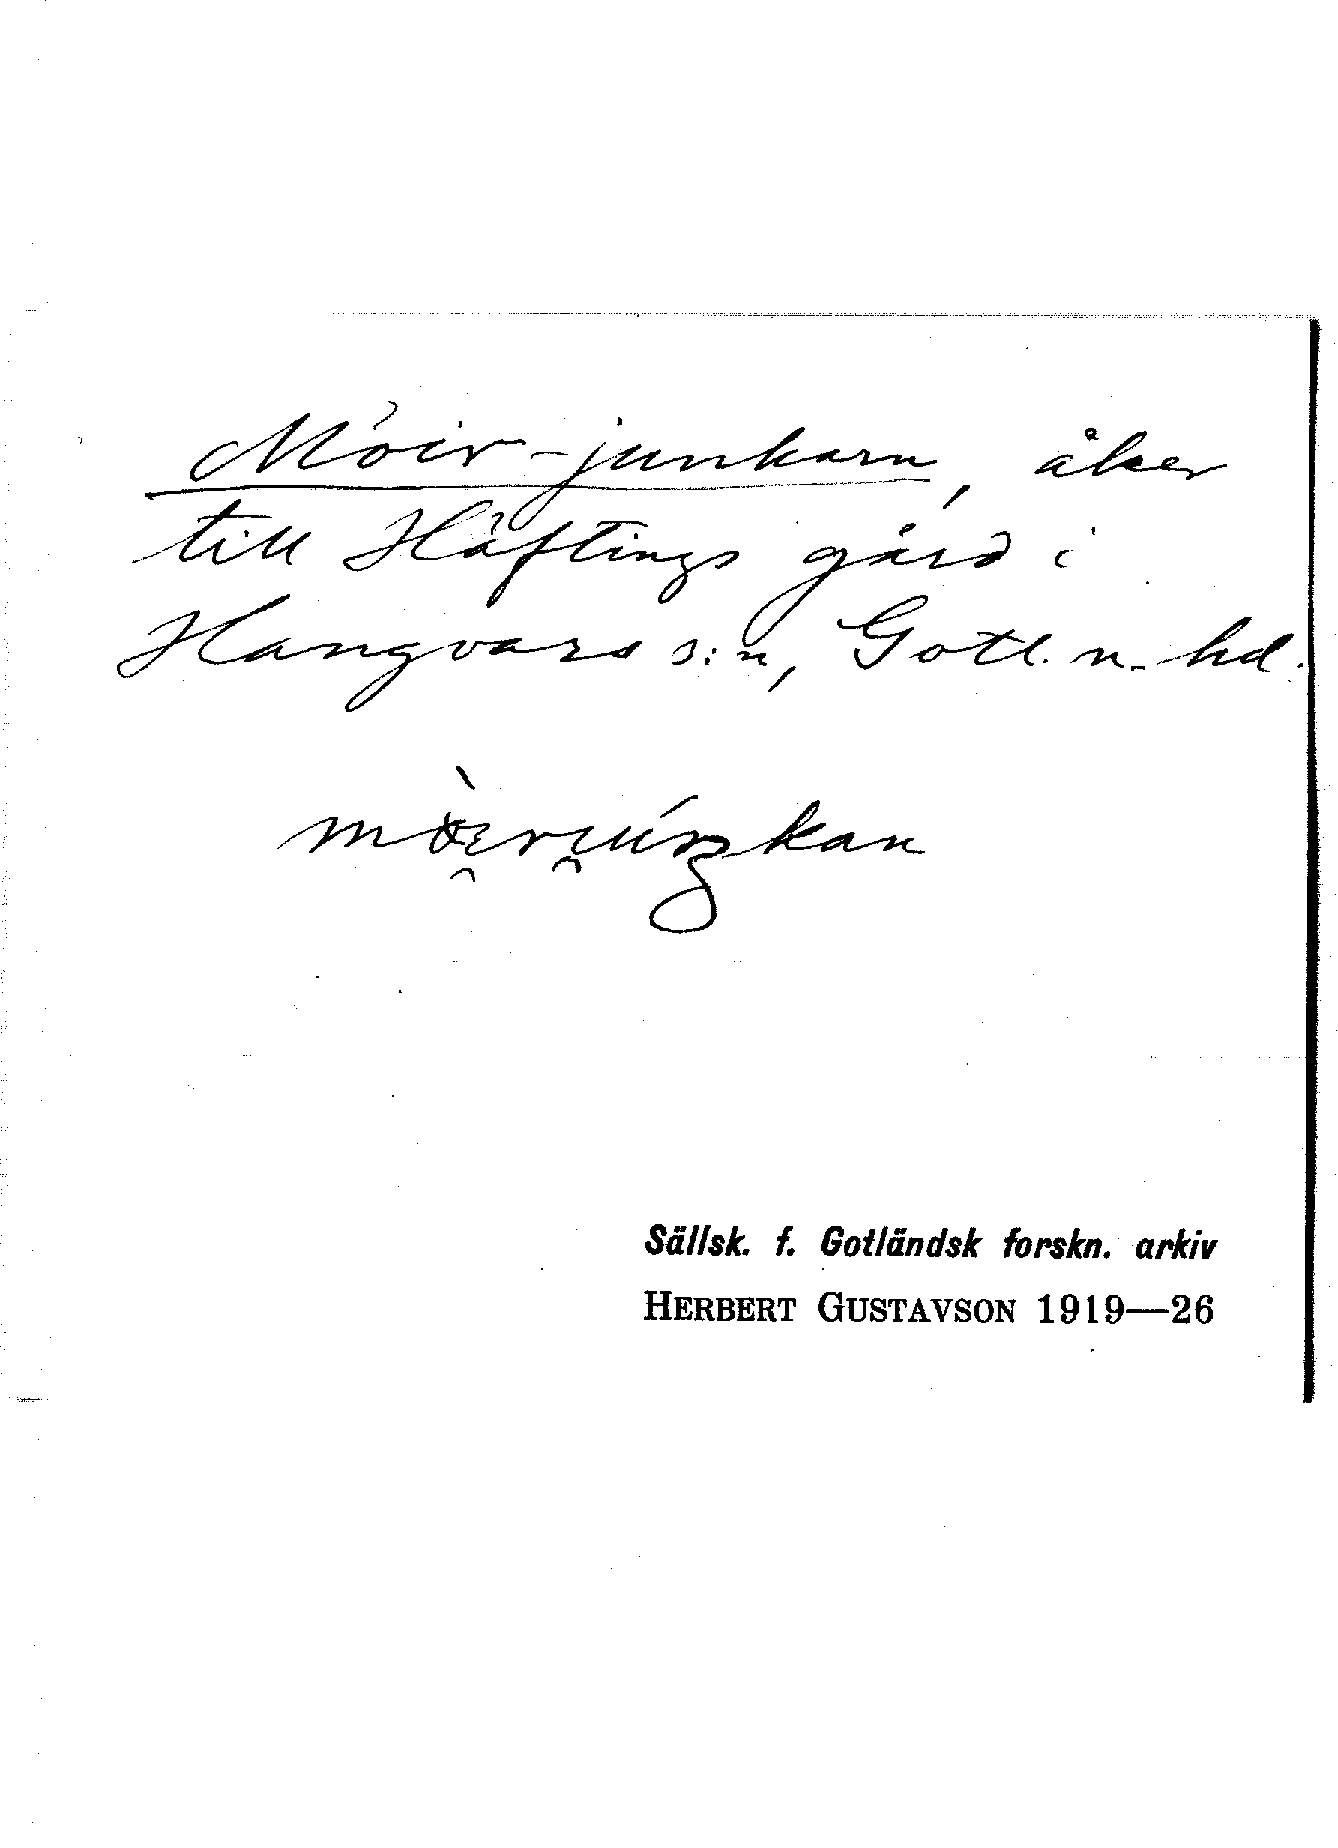 Möir-junkarn, åker
till Häftings gård i
Hangvars s:n, Gotl. n. hd.
Sällsk. f. Gotländsk forskn. arkiv
HERBERT GUSTAVSON 1919—26